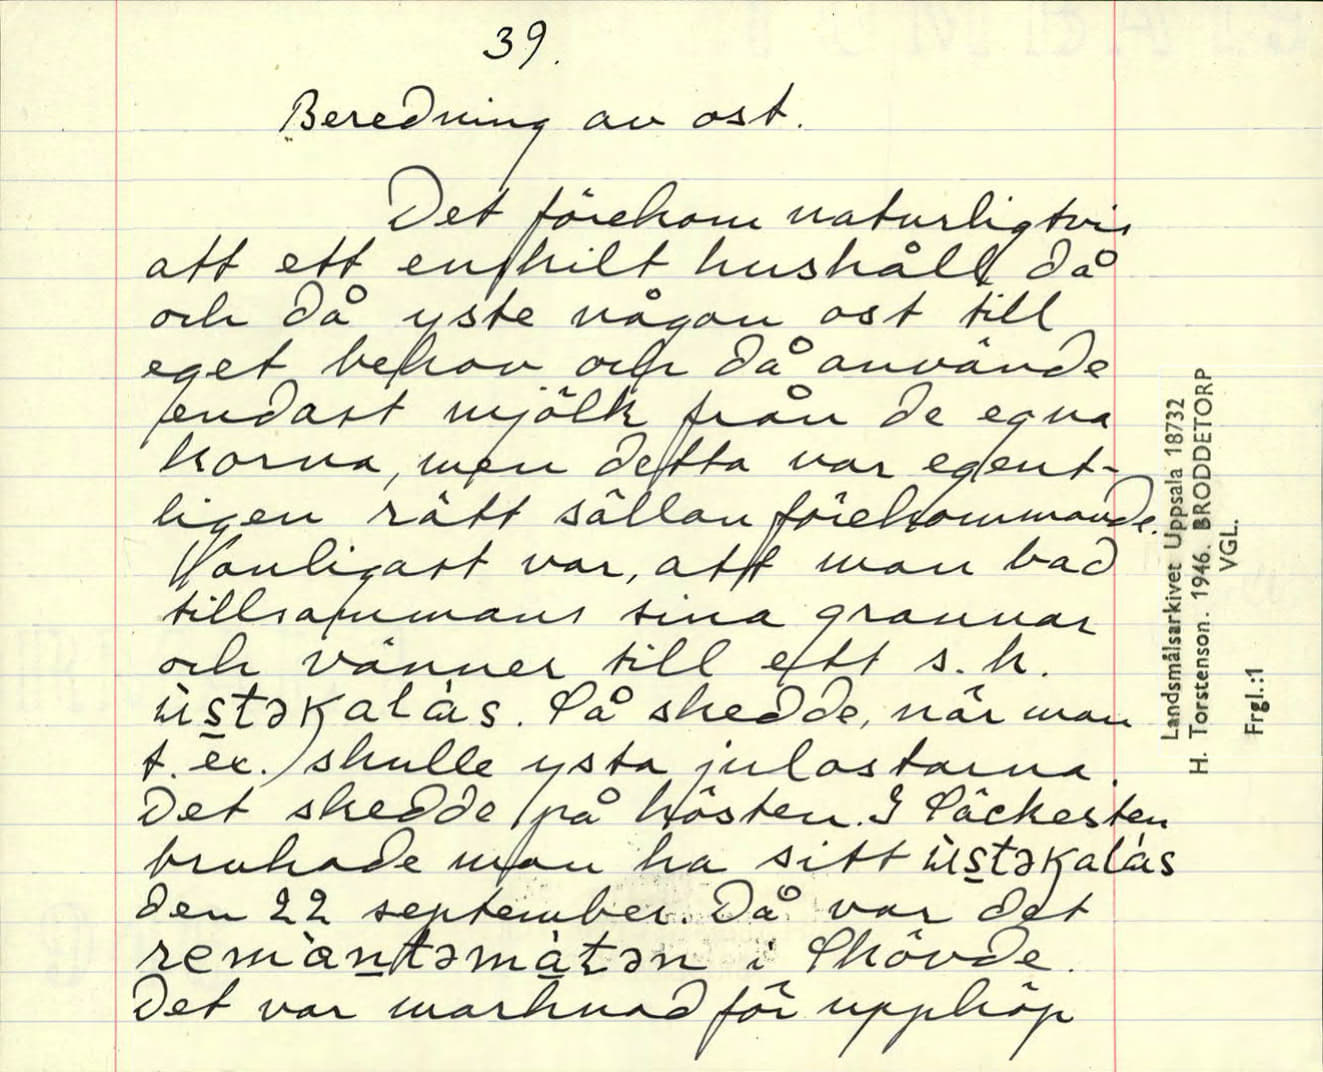 39.
Beredning av ost.
Det förekom naturligtvis
att ett enskilt hushåll då
och då yste någon ost till
eget behov och då använde
endast mjölk från de egna
korna, men detta var egent-
ligen rätt sällan förekommande.
Vanligast var, att man bad
tillsammans sina grannar
och vänner till ett s.k.
ùs̲təkalás. Så skedde, när man
t.ex. skulle ysta julostarna.
Det skedde på hösten. I Säckesten
brukade man ha sitt ùs̲təkalás
den 22 september. Då var det
remàn̲təmàt̲ən i Skövde.
Det var marknad för uppköp
Landsmålsarkivet Uppsala 18732
H. Torstenson. 1946. BRODDETORP
VGL.
Frgl.:1